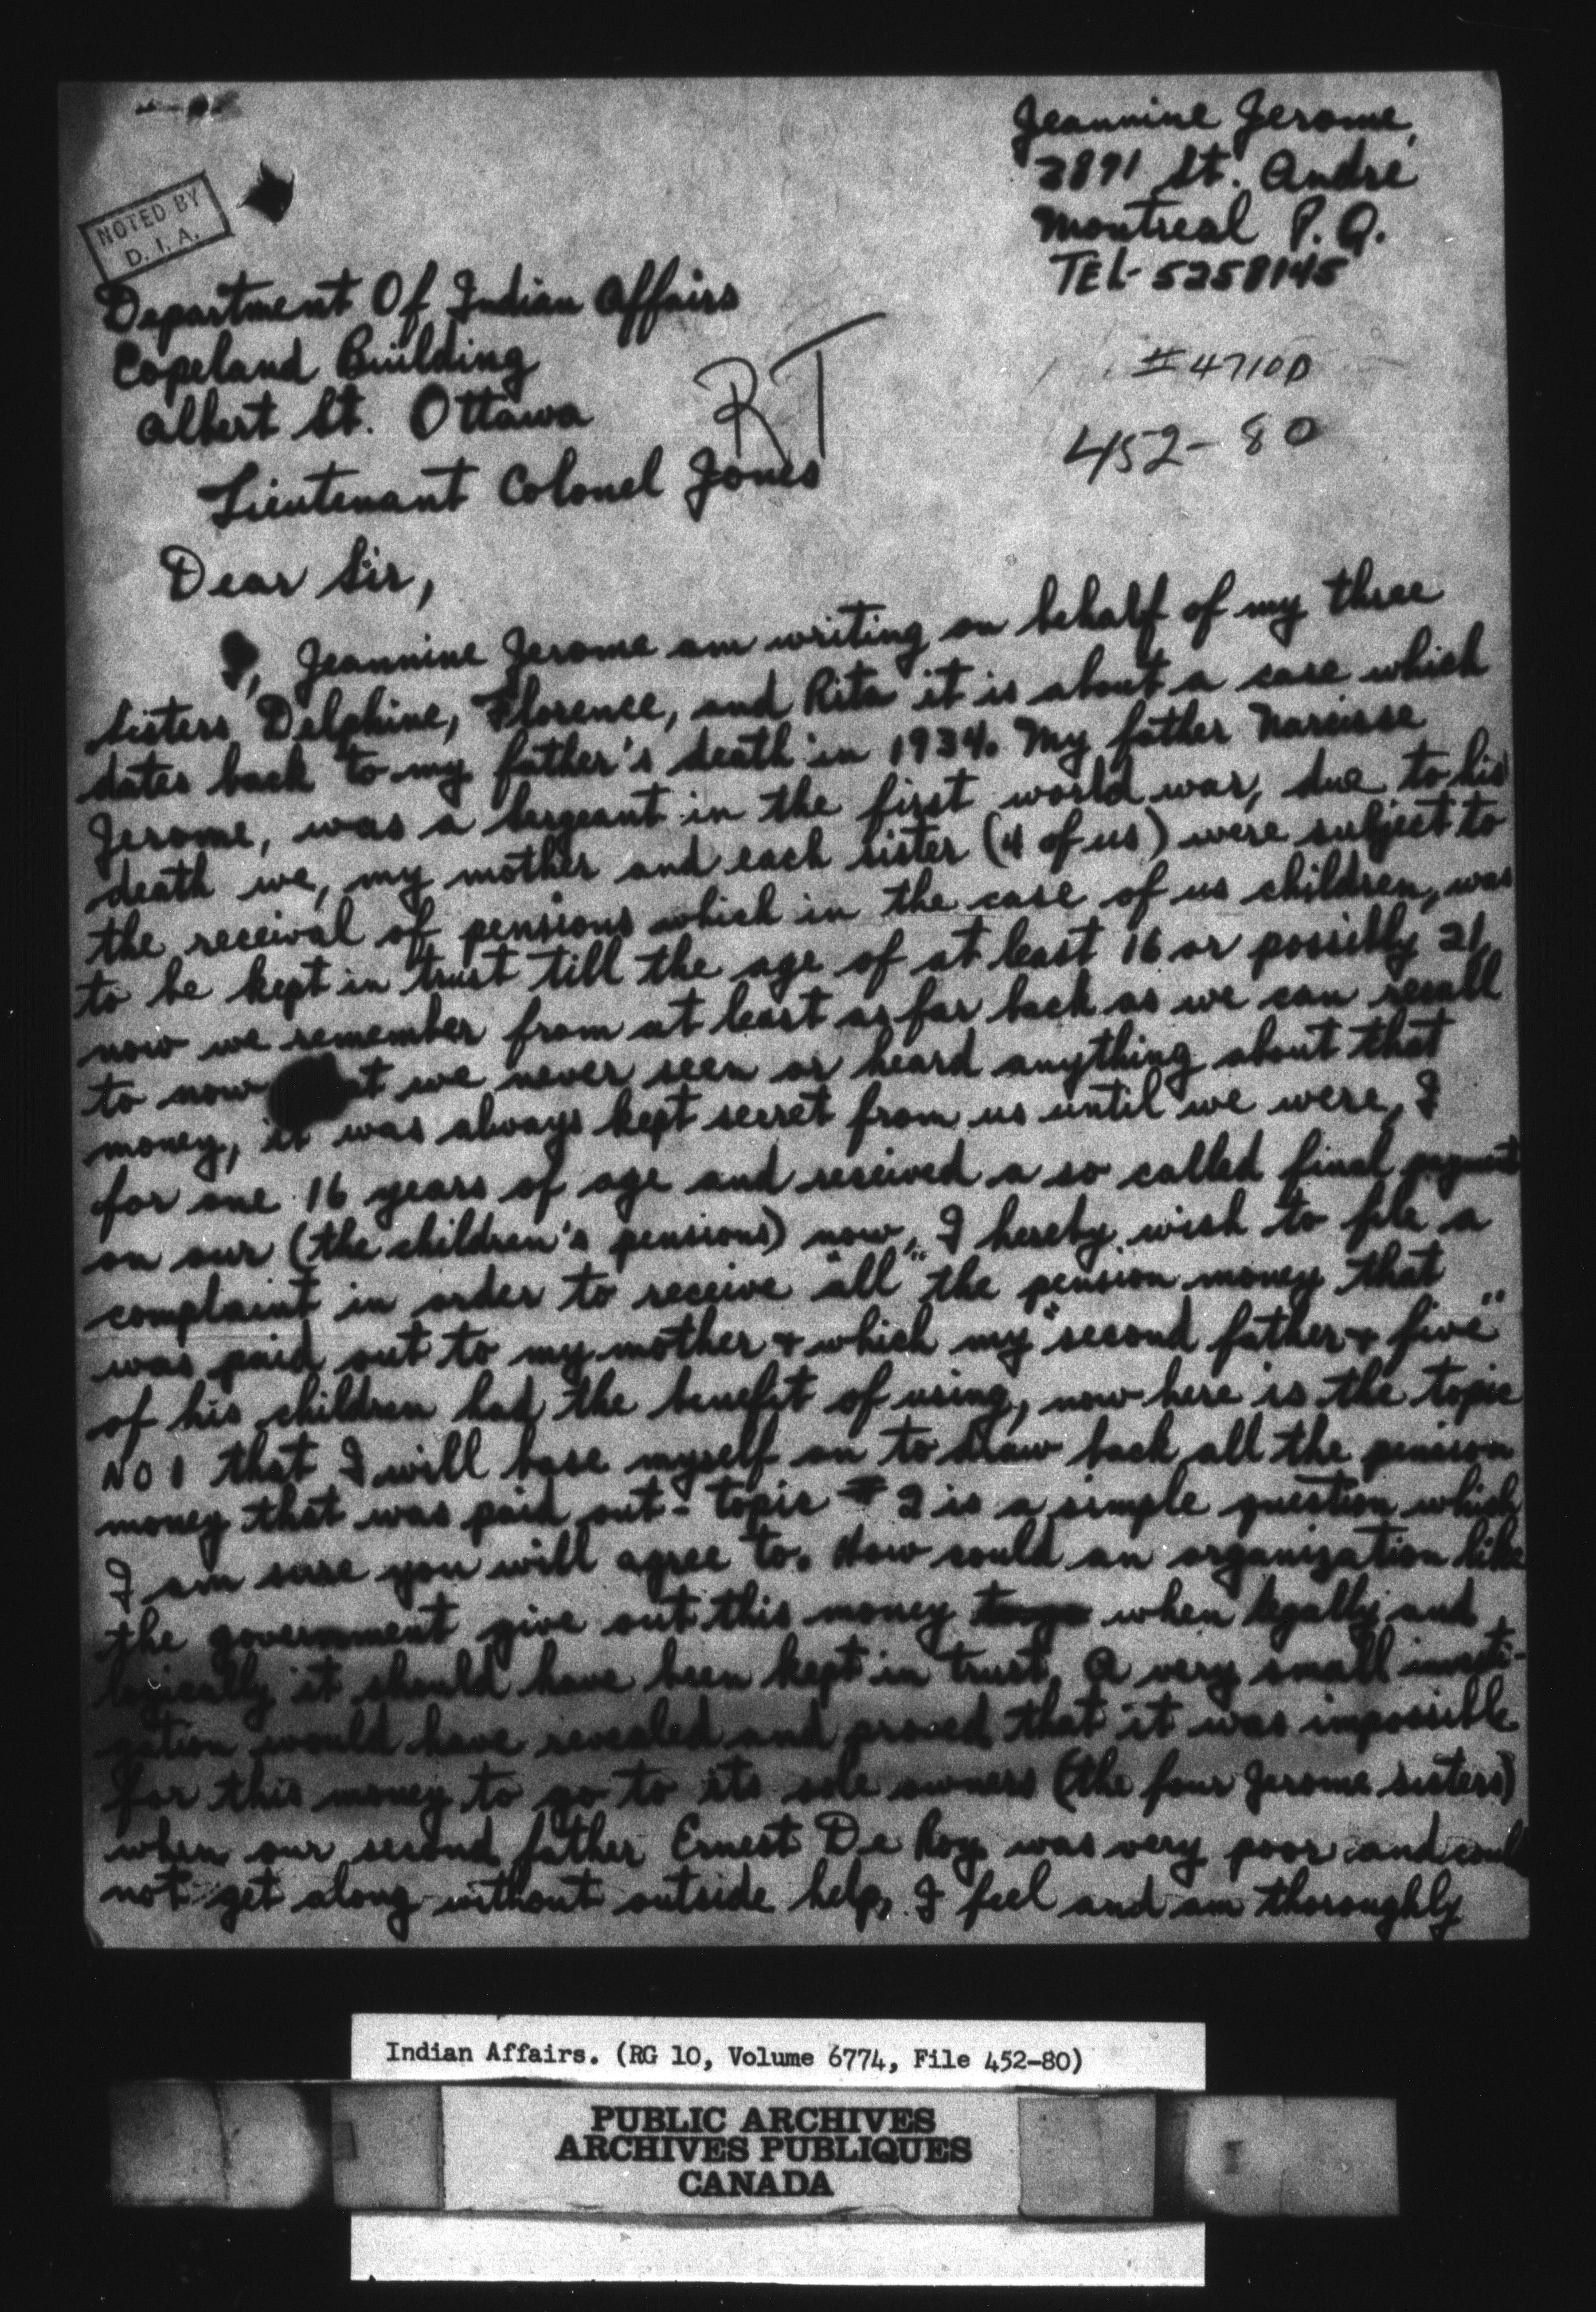 Jeannine Jerome,
2891 St. André
Montreal P.Q.
TEL- 5258145
NOTED BY
D. I. A.
Department Of Indian Affairs
Copeland Building
Albert St. Ottawa
RT
#4710D
452-80
Lieutenant Colonel Jones
Dear Sir,
I, Jeannine Jerome am writing on behalf of my three
sisters Delphine, Florence, and Rita it is about a case which
dates back to my father's death in 1934. My father Narcisse
Jerome, was a Sergeant in the first world war, due to his
death we, my mother and each sister (4 of us) were subject to
the receival of pensions which in the case of us children, was
to be kept in trust till the age of at least 16 or possibly 21,
now we remember from at least as far back as we can recall
to now we never seen or heard anything about that
money, it was always kept secret from us until we were, I
for one 16 years of age and received a so called final payment
on our (the children's pensions) now, I hereby wish to file a
complaint in order to receive "all" the pension money that
was paid out to my mother & which my "second father & five"
of his children had the benefit of using, now here is the topic
NO 1 that I will base myself on to draw back all the pension
money that was paid out - topic # 2 is a simple question which
I am sure you will agree to. How could an organization like
the government give out this money when legally and
logically it should have been kept in trust. A very small investi-
gation would have revealed and proved that it was impossible
for this money to go to its sole owners (the four Jerome sisters)
when our second father Ernest De Roy was very poor and could
not get along without outside help, I feel and am thoroughly
Indian Affairs. (RG 10, Volume 6774, File 452-80)
PUBLIC ARCHIVES
ARCHIVES PUBLIQUES
CANADA